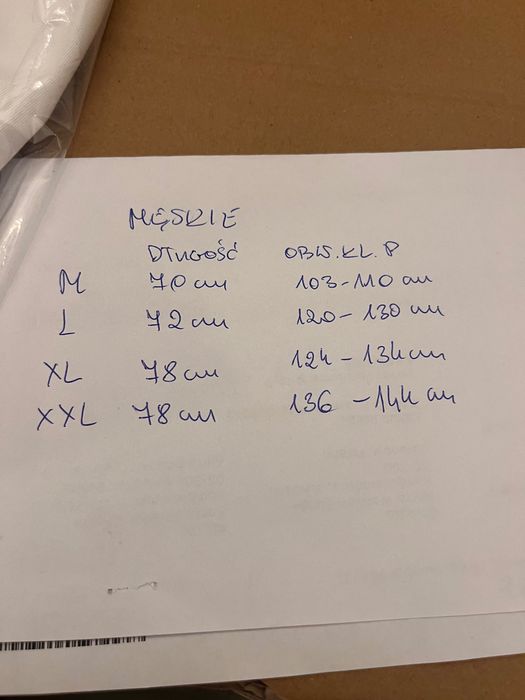 MĘSKIE
DŁUGOŚĆ OBW. KL. P
M 70 cm 103-110 cm
L 72 cm 120-130 cm
XL 78 cm 124-134 cm
XXL 78 cm 136-144 cm